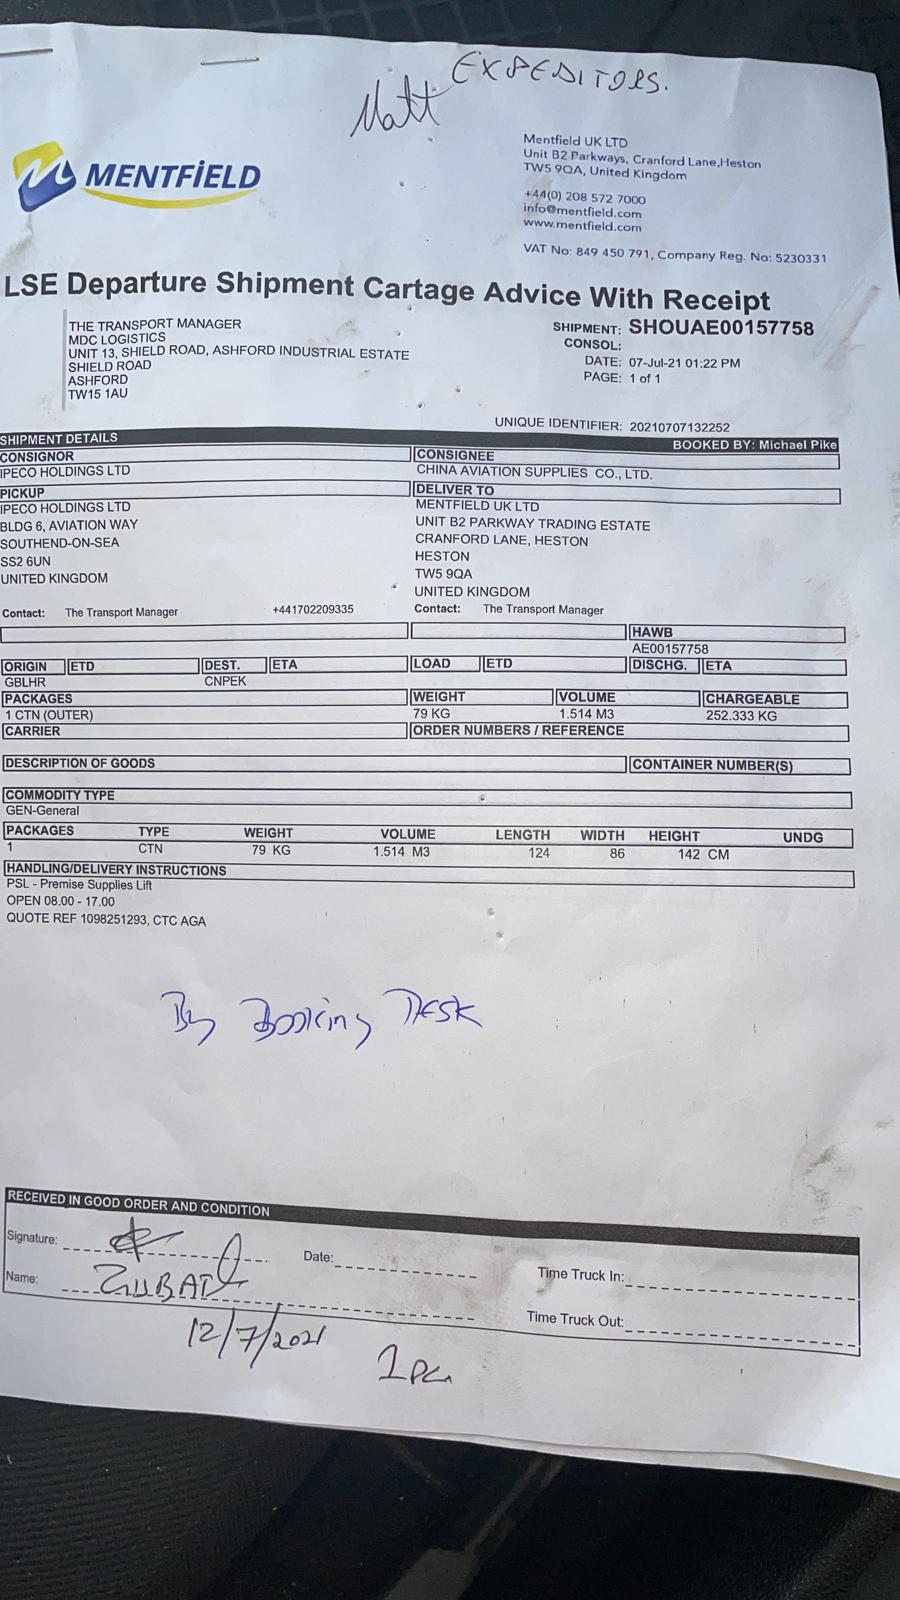 EXPEDITORS.
Matt
MENTFiELD
Mentfield UK LTD
Unit B2 Parkways, Cranford Lane,Heston
TW5 9QA, United Kingdom
+44(0) 208 572 7000
info@mentfield.com
www.mentfield.com
VAT No: 849 450 791, Company Reg. No: 5230331
LSE Departure Shipment Cartage Advice With Receipt
THE TRANSPORT MANAGER
MDC LOGISTICS
UNIT 13, SHIELD ROAD, ASHFORD INDUSTRIAL ESTATE
SHIELD ROAD
ASHFORD
TW15 1AU
SHIPMENT: SHOUAE00157758
CONSOL:
DATE: 07-Jul-21 01:22 PM
PAGE: 1 of 1
UNIQUE IDENTIFIER: 20210707132252
SHIPMENT DETAILS BOOKED BY: Michael Pike
CONSIGNOR CONSIGNEE
IPECO HOLDINGS LTD CHINA AVIATION SUPPLIES CO., LTD.
PICKUP DELIVER TO
IPECO HOLDINGS LTD MENTFIELD UK LTD
BLDG 6, AVIATION WAY UNIT B2 PARKWAY TRADING ESTATE
SOUTHEND-ON-SEA CRANFORD LANE, HESTON
SS2 6UN HESTON
UNITED KINGDOM TW5 9QA
UNITED KINGDOM
Contact: The Transport Manager +441702209335 Contact: The Transport Manager
HAWB
AE00157758
ORIGIN ETD DEST. ETA LOAD ETD DISCHG. ETA
GBLHR CNPEK
PACKAGES WEIGHT VOLUME CHARGEABLE
1 CTN (OUTER) 79 KG 1.514 M3 252.333 KG
CARRIER ORDER NUMBERS / REFERENCE
DESCRIPTION OF GOODS CONTAINER NUMBER(S)
COMMODITY TYPE
GEN-General
PACKAGES TYPE WEIGHT VOLUME LENGTH WIDTH HEIGHT UNDG
1 CTN 79 KG 1.514 M3 124 86 142 CM
HANDLING/DELIVERY INSTRUCTIONS
PSL - Premise Supplies Lift
OPEN 08.00 - 17.00
QUOTE REF 1098251293, CTC AGA
By Booking DESK
RECEIVED IN GOOD ORDER AND CONDITION
Signature: Date: Time Truck In:
Name: Time Truck Out:
12/7/2021